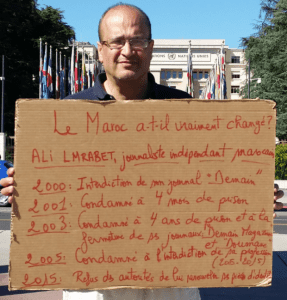 Le Maroc a-t-il vraiment changé?
ALI LMRABET, journaliste indépendant marocain
2000: Interdiction de son journal "Demain"
2001: Condamné à 4 mois de prison
2003: Condamné à 4 ans de prison et à la
fermeture de ses journaux, Demain Magazine
et Doumane
2005: Condamné à l'interdiction de sa profession
(2005-2015)
2015: Refus des autorités de lui renouveler ses pièces d'identité